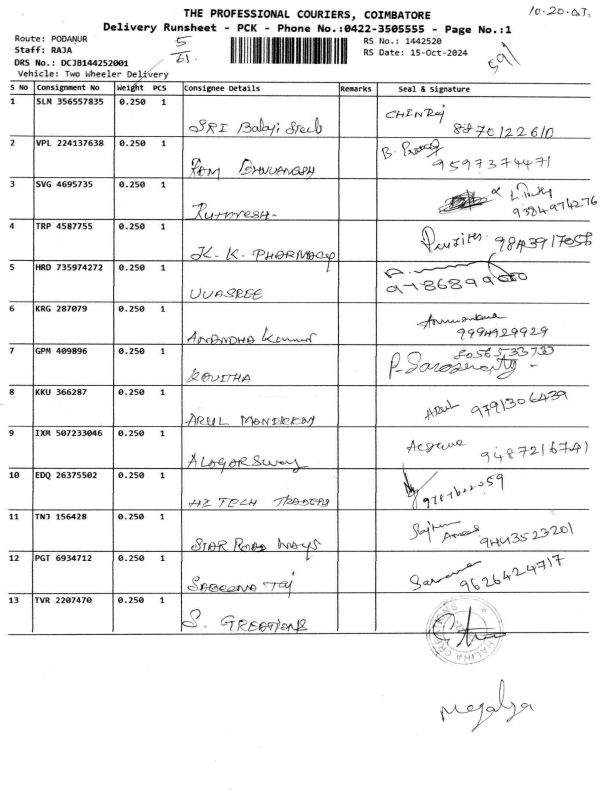 THE PROFESSIONAL COURIERS, COIMBATORE
10.20.
Delivery Runsheet - PCK - Phone No.:0422-3505555 - Page No.:1
Route: PODANUR
5
61
RS No.: 1442520
59
Staff: RAJA
RS Date: 15-Oct-2024
DRS No.: DCJB144252001
Vehicle: Two Wheeler Delivery
S No Consignment No Weight PCS Consignee Details Remarks Seal & Signature
1 SLM 356557835 0.250 1 SRI Balaji Steels CHINRaj 8870122610
2 VPL 224137638 0.250 1 RAM B. 9597374471
3 SVG 4695735 0.250 1 9384974276
4 TRP 4587755 0.250 1 K. K. PHARMACY 9843917058
5 HRD 735974272 0.250 1 UUASREE
6 KRG 287079 0.250 1 ANANDHA Kumar 9994929929
7 GPM 409896 0.250 1 KOVITHA 8056533733 P.
8 KKU 366287 0.250 1 ARUL MANICKAM ARUL 9791306439
9 IXM 507233046 0.250 1 ALAGAR Swamy 9487216741
10 EDQ 26375502 0.250 1 HI TECH TRADERS
11 TNJ 156428 0.250 1 STAR ROAD WAYS 9443523201
12 PGT 6934712 0.250 1 SABEENA Taj 9626424717
13 TVR 2207470 0.250 1 S. GREATIONS